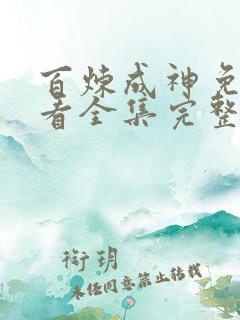 百炼成神免
看全集完整
衔玥
未经同意禁止转载